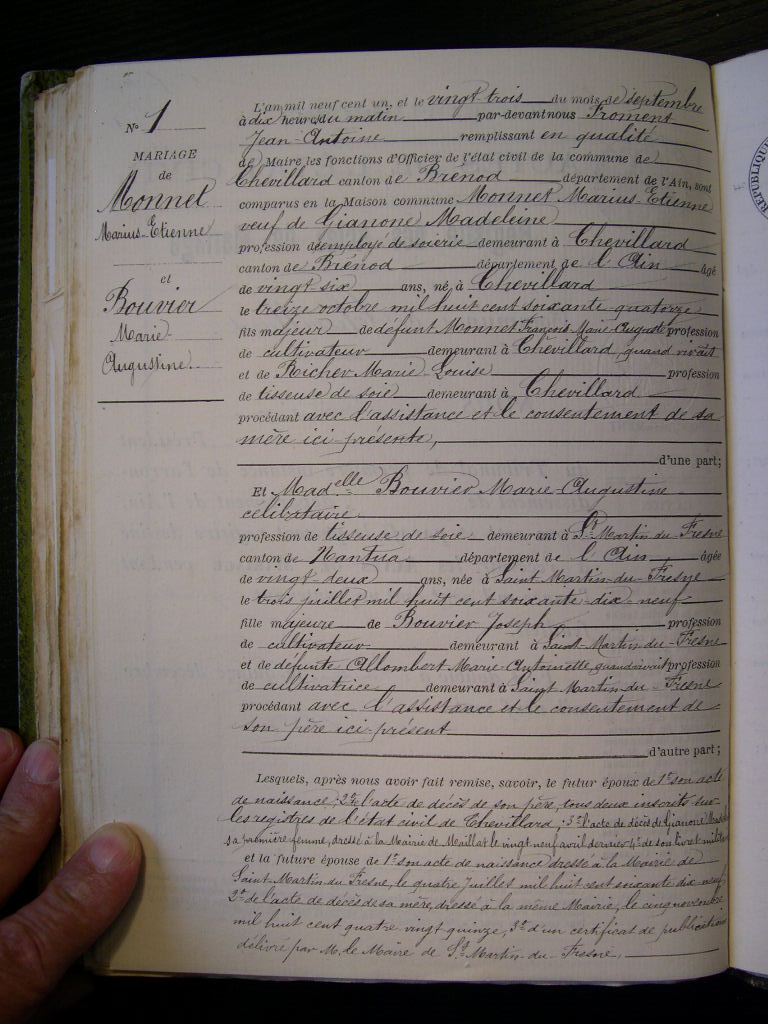 N° 1
MARIAGE
de
Monnet
Marius-Etienne
et
Bouvier
Marie-
Augustine
L'an mil neuf cent un, et le vingt trois du mois de septembre
à dix heures du matin par-devant nous Froment
Jean-Antoine remplissant en qualité
de Maire les fonctions d'Officier de l'état civil de la commune de
Chevillard canton de Brénod département de l'Ain, sont
comparus en la Maison commune Monnet Marius-Etienne
veuf de Gianone Madeleine
profession d'employé de soierie demeurant à Chevillard
canton de Brénod département de l'Ain âgé
de vingt-six ans, né à Chevillard
le treize octobre mil huit cent soixante quatorze
fils majeur de défunt Monnet François-Marie-Auguste profession
de cultivateur demeurant à Chevillard quand vivait
et de Richer Marie Louise profession
de tisseuse de soie demeurant à Chevillard
procédant avec l'assistance et le consentement de sa
mère ici présente,
d'une part;
Et Madelle Bouvier Marie-Augustine
célibataire
profession de tisseuse de soie demeurant à St-Martin-du-Fresne
canton de Nantua département de l'Ain âgée
de vingt-deux ans, née à Saint-Martin-du-Fresne
le trois juillet mil huit cent soixante-dix neuf
fille majeure de Bouvier Joseph profession
de cultivateur demeurant à Saint-Martin-du-Fresne
et de défunte Allombert Marie-Antoinette, quand vivait profession
de cultivatrice demeurant à Saint Martin-du-Fresne
procédant avec l'assistance et le consentement de
son père ici présent
d'autre part;
Lesquels, après nous avoir fait remise, savoir, le futur époux de 1° son acte
de naissance; 2° de l'acte de décès de son père, tous deux inscrits sur
les registres de l'état civil de Chevillard; 3° l'acte de décès de Gianone
sa première femme, dressé à la Mairie de Maillat le vingt neuf avril dernier 4° de son livret militaire
et la future épouse de 1° son acte de naissance dressé à la Mairie de
Saint-Martin du Fresne, le quatre Juillet mil huit cent soixante dix neuf
2° de l'acte de décès de sa mère, dressé à la même Mairie, le cinq novembre
mil huit cent quatre vingt quinze, 3° d'un certificat de publications
délivré par M. le Maire de St Martin-du-Fresne,
RÉPUBLIQUE